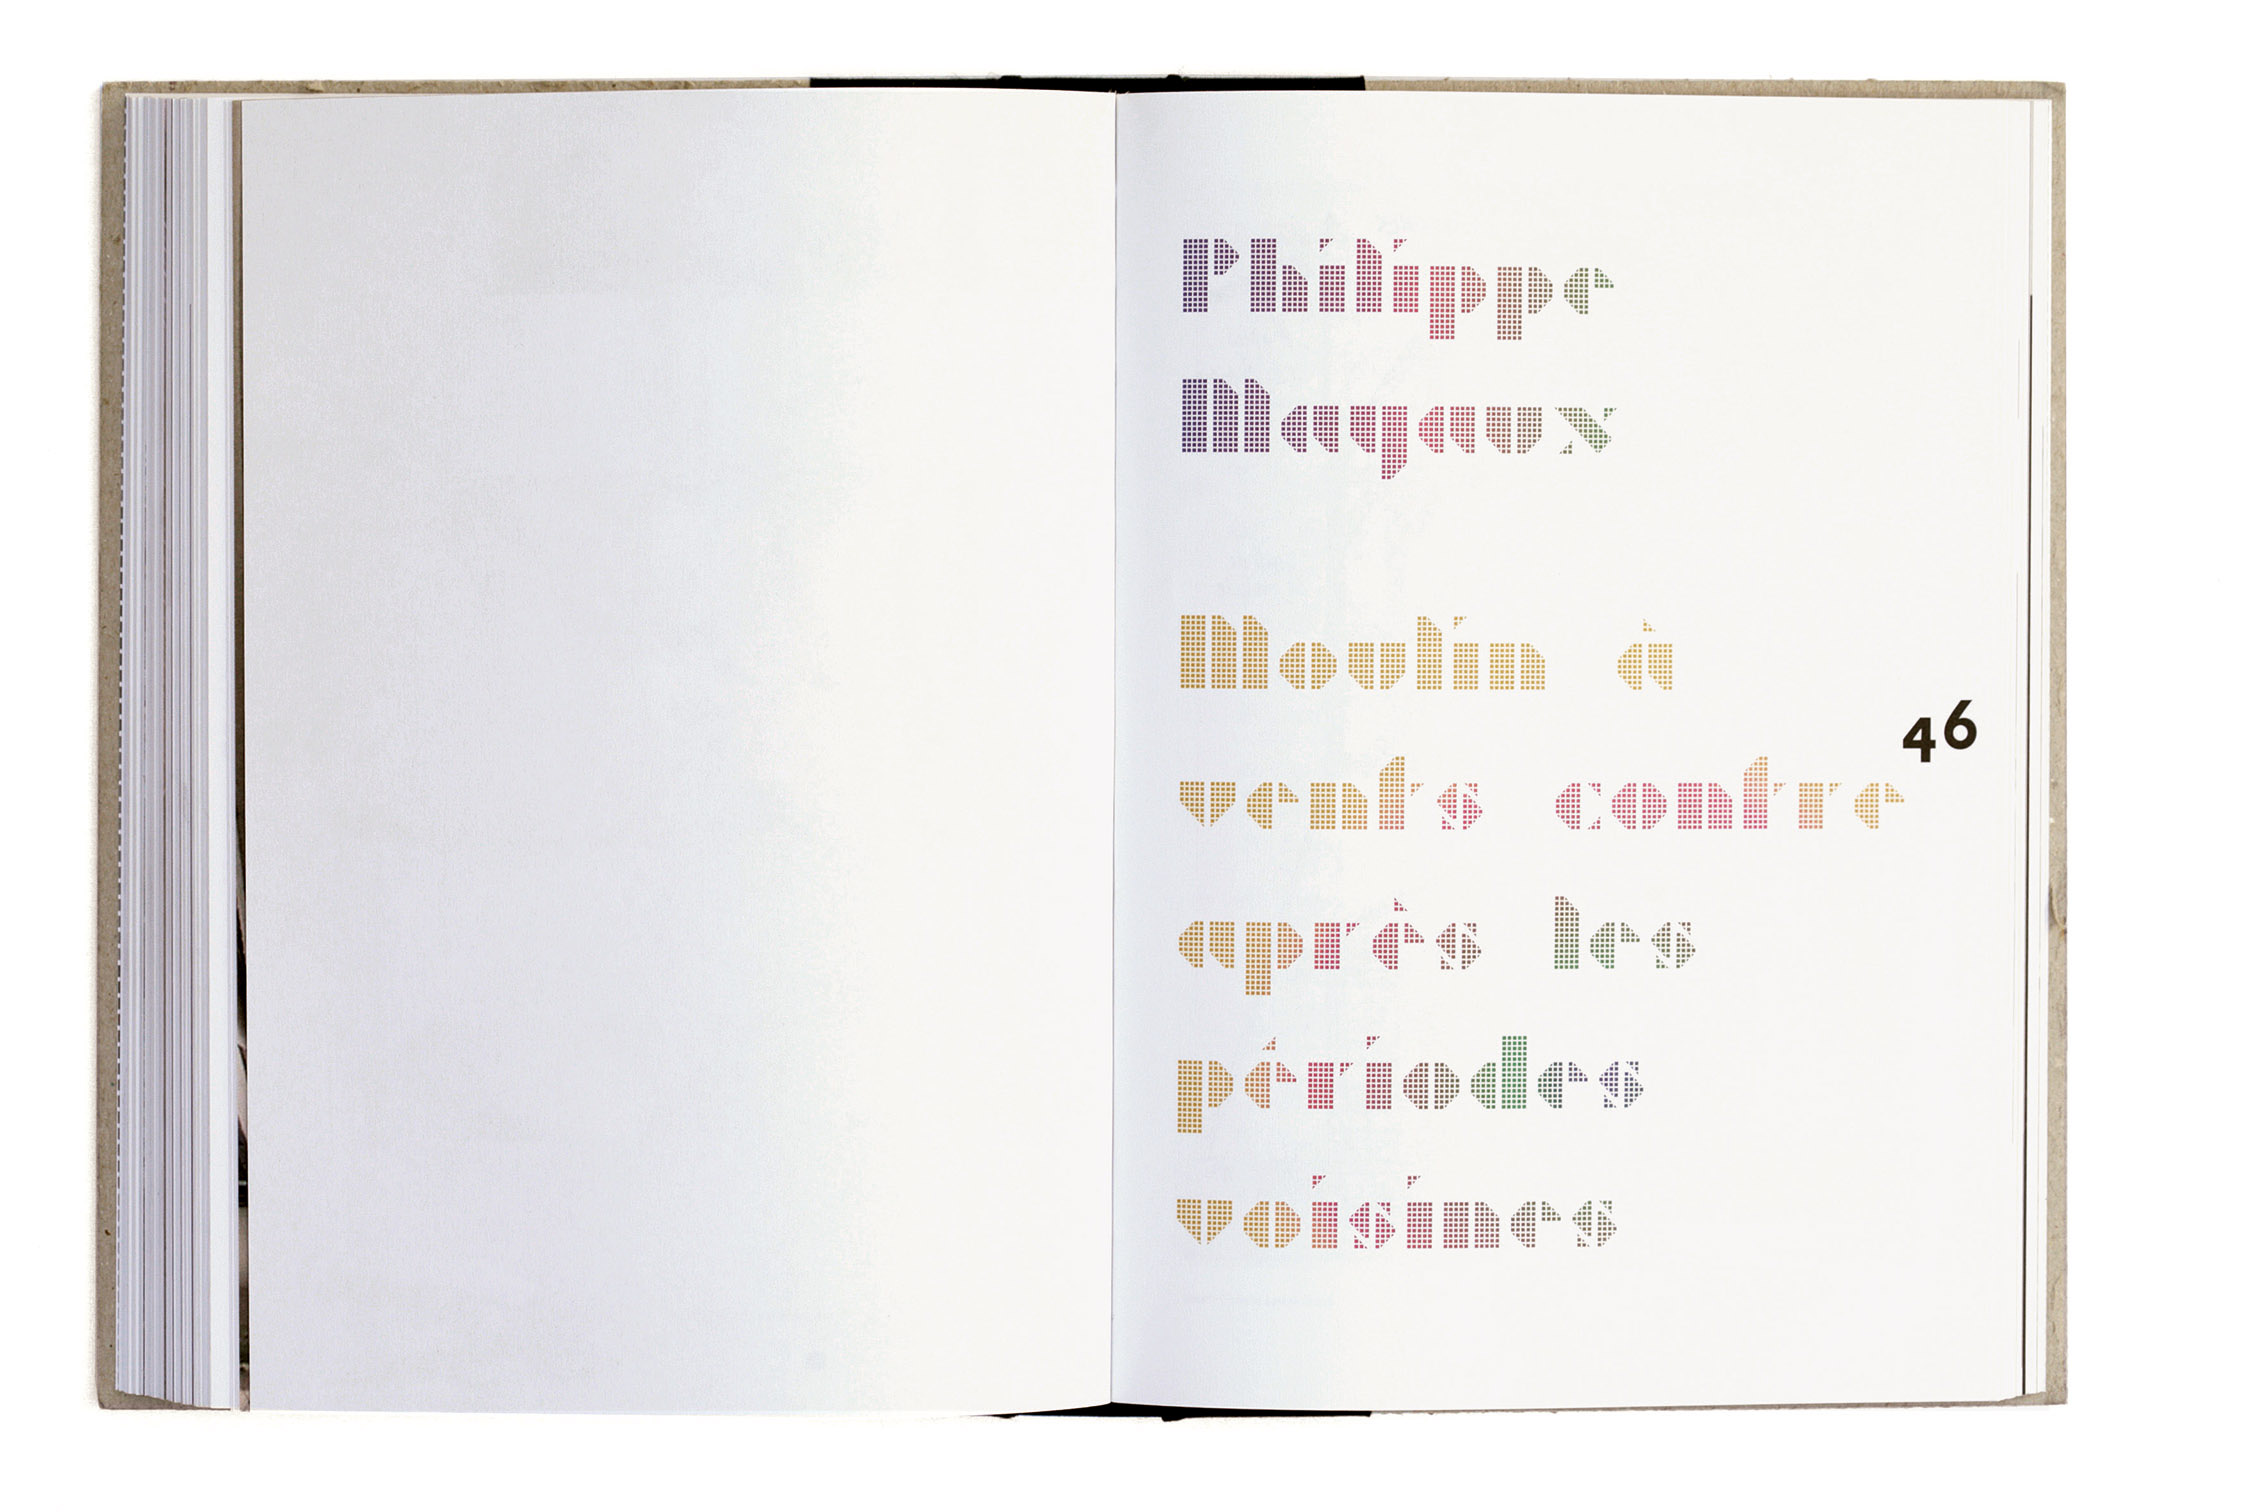 Philippe
Mayaux
Moulin à
46
vents contre
après les
périodes
voisines